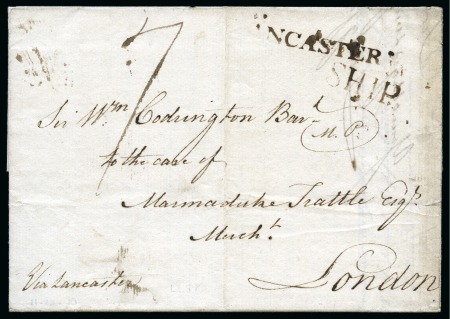 NCASTER
SHIP
7
Sir Wm Codrington Bart
M.P.
to the care of
Marmaduke Trattle Esqr
Mercht.
Via Lancaster
London